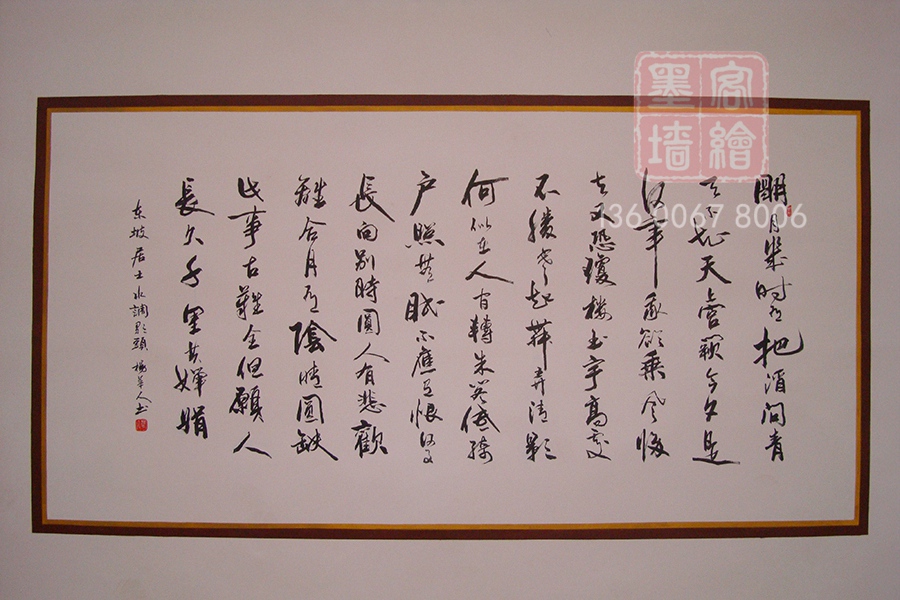 明月幾时有把酒问青
天不知天上宫阙今夕是
何年我欲乘风归
去又恐瓊樓玉宇高處
不勝寒起舞弄清影
何似在人间轉朱阁低绮
户照無眠不應有恨何事
長向别時圓人有悲歡
離合月有陰晴圓缺
此事古難全但願人
長久千里共嬋娟
东坡居士水調歌頭 人书
墨客
墙繪
136 0067 8006